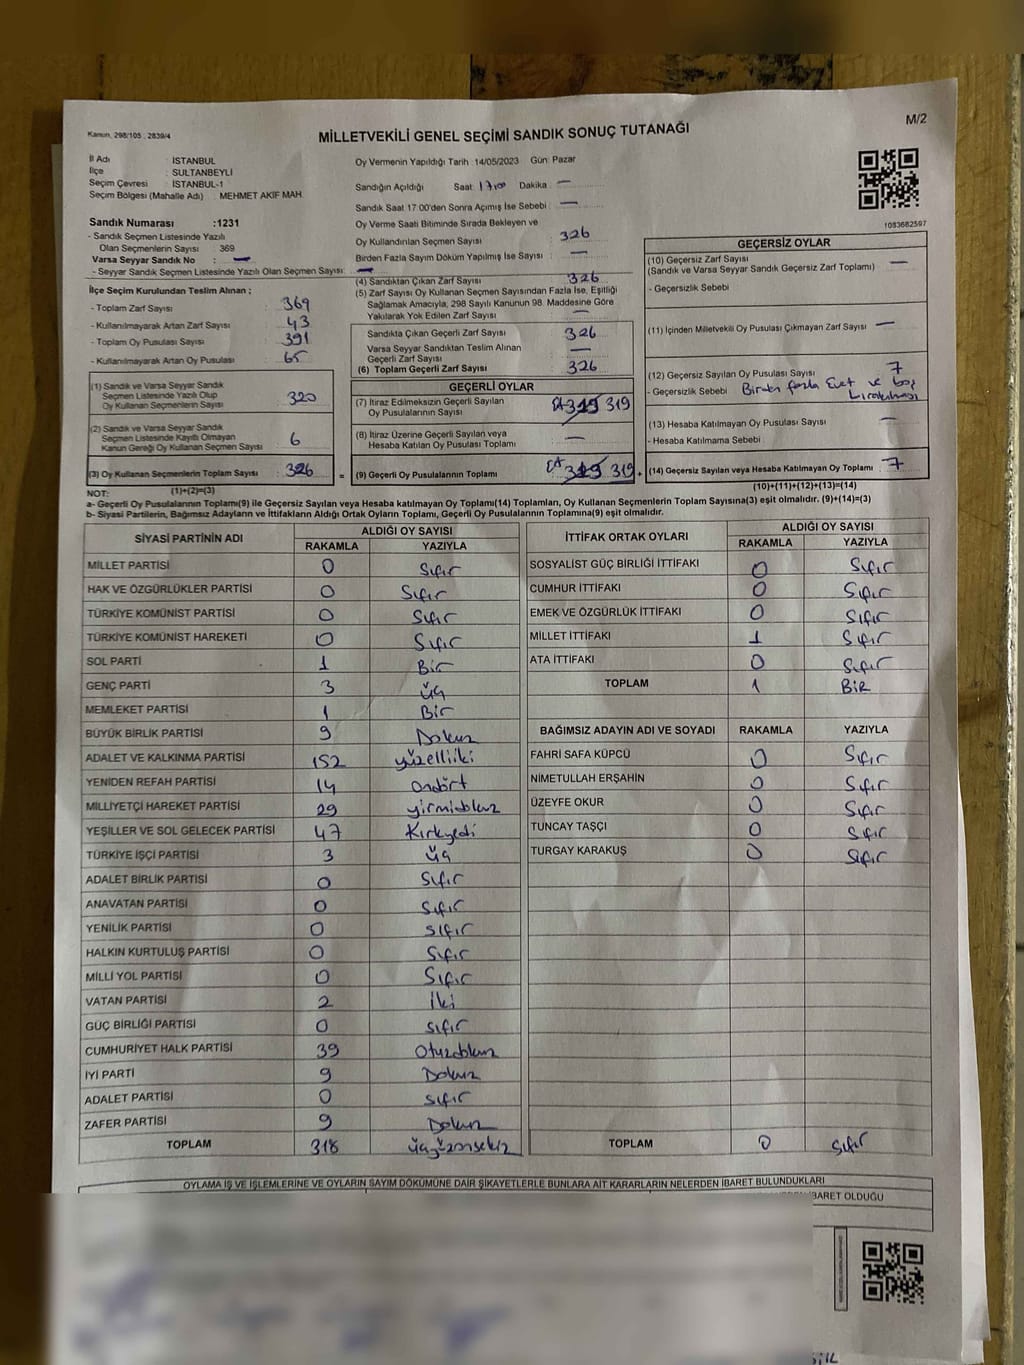 Kanun, 298/105 , 2839/4
MİLLETVEKİLİ GENEL SEÇİMİ SANDIK SONUÇ TUTANAĞI
M/2
İl Adı : İSTANBUL
İlçe : SULTANBEYLİ
Seçim Çevresi : İSTANBUL-1
Seçim Bölgesi (Mahalle Adı) : MEHMET AKİF MAH.
Sandık Numarası :1231
- Sandık Seçmen Listesinde Yazılı
Olan Seçmenlerin Sayısı 369
Varsa Seyyar Sandık No : —
- Seyyar Sandık Seçmen Listesinde Yazılı Olan Seçmen Sayısı: —
İlçe Seçim Kurulundan Teslim Alınan ;
- Toplam Zarf Sayısı : 369
- Kullanılmayarak Artan Zarf Sayısı : 43
- Toplam Oy Pusulası Sayısı : 391
- Kullanılmayarak Artan Oy Pusulası : 65
(1) Sandık ve Varsa Seyyar Sandık
Seçmen Listesinde Yazılı Olup
Oy Kullanan Seçmenlerin Sayısı 320
(2) Sandık ve Varsa Seyyar Sandık
Seçmen Listesinde Kayıtlı Olmayan
Kanun Gereği Oy Kullanan Seçmen Sayısı 6
(3) Oy Kullanan Seçmenlerin Toplam Sayısı 326
(1)+(2)=(3)
Oy Vermenin Yapıldığı Tarih : 14/05/2023 Gün: Pazar
Sandığın Açıldığı Saat: 17:00 Dakika : —
Sandık Saat 17:00'den Sonra Açımış İse Sebebi : —
Oy Verme Saati Bitiminde Sırada Bekleyen ve
Oy Kullandırılan Seçmen Sayısı : 326
Birden Fazla Sayım Döküm Yapılmış İse Sayısı : —
(4) Sandıktan Çıkan Zarf Sayısı : 326
(5) Zarf Sayısı Oy Kullanan Seçmen Sayısından Fazla İse, Eşitliği
Sağlamak Amacıyla, 298 Sayılı Kanunun 98. Maddesine Göre
Yakılarak Yok Edilen Zarf Sayısı : —
Sandıkta Çıkan Geçerli Zarf Sayısı : 326
Varsa Seyyar Sandıktan Teslim Alınan
Geçerli Zarf Sayısı : —
(6) Toplam Geçerli Zarf Sayısı : 326
GEÇERLİ OYLAR
(7) İtiraz Edilmeksizin Geçerli Sayılan
Oy Pusulalarının Sayısı 319
(8) İtiraz Üzerine Geçerli Sayılan veya
Hesaba Katılan Oy Pusulası Toplamı —
= (9) Geçerli Oy Pusulalarının Toplamı 319 +
1083682597
GEÇERSİZ OYLAR
(10) Geçersiz Zarf Sayısı : —
(Sandık ve Varsa Seyyar Sandık Geçersiz Zarf Toplamı)
- Geçersizlik Sebebi
(11) İçinden Milletvekili Oy Pusulası Çıkmayan Zarf Sayısı : —
(12) Geçersiz Sayılan Oy Pusulası Sayısı : 7
- Geçersizlik Sebebi Birden fazla Evet ve boş
bırakılması
(13) Hesaba Katılmayan Oy Pusulası Sayısı : —
- Hesaba Katılmama Sebebi :
(14) Geçersiz Sayılan veya Hesaba Katılmayan Oy Toplamı : 7
(10)+(11)+(12)+(13)=(14)
NOT:
a- Geçerli Oy Pusulalarının Toplamı(9) ile Geçersiz Sayılan veya Hesaba katılmayan Oy Toplamı(14) Toplamları, Oy Kullanan Seçmenlerin Toplam Sayısına(3) eşit olmalıdır. (9)+(14)=(3)
b- Siyasi Partilerin, Bağımsız Adayların ve İttifakların Aldığı Ortak Oyların Toplamı, Geçerli Oy Pusulalarının Toplamına(9) eşit olmalıdır.
SİYASİ PARTİNİN ADI ALDIĞI OY SAYISI
RAKAMLA YAZIYLA
MİLLET PARTİSİ 0 Sıfır
HAK VE ÖZGÜRLÜKLER PARTİSİ 0 Sıfır
TÜRKİYE KOMÜNİST PARTİSİ 0 Sıfır
TÜRKİYE KOMÜNİST HAREKETİ 0 Sıfır
SOL PARTİ 1 Bir
GENÇ PARTİ 3 üç
MEMLEKET PARTİSİ 1 Bir
BÜYÜK BİRLİK PARTİSİ 9 Dokuz
ADALET VE KALKINMA PARTİSİ 152 yüzelliiki
YENİDEN REFAH PARTİSİ 14 ondört
MİLLİYETÇİ HAREKET PARTİSİ 29 yirmidokuz
YEŞİLLER VE SOL GELECEK PARTİSİ 47 Kırkyedi
TÜRKİYE İŞÇİ PARTİSİ 3 üç
ADALET BİRLİK PARTİSİ 0 Sıfır
ANAVATAN PARTİSİ 0 Sıfır
YENİLİK PARTİSİ 0 sıfır
HALKIN KURTULUŞ PARTİSİ 0 Sıfır
MİLLİ YOL PARTİSİ 0 Sıfır
VATAN PARTİSİ 2 İki
GÜÇ BİRLİĞİ PARTİSİ 0 sıfır
CUMHURİYET HALK PARTİSİ 39 Otuzdokuz
İYİ PARTİ 9 Dokuz
ADALET PARTİSİ 0 sıfır
ZAFER PARTİSİ 9 Dokuz
TOPLAM 318 üçyüzonsekiz
İTTİFAK ORTAK OYLARI ALDIĞI OY SAYISI
RAKAMLA YAZIYLA
SOSYALİST GÜÇ BİRLİĞİ İTTİFAKI 0 Sıfır
CUMHUR İTTİFAKI 0 Sıfır
EMEK VE ÖZGÜRLÜK İTTİFAKI 0 Sıfır
MİLLET İTTİFAKI 1 Sıfır
ATA İTTİFAKI 0 Sıfır
TOPLAM 1 BİR
BAĞIMSIZ ADAYIN ADI VE SOYADI RAKAMLA YAZIYLA
FAHRİ SAFA KÜPCÜ 0 Sıfır
NİMETULLAH ERŞAHİN 0 Sıfır
ÜZEYFE OKUR 0 Sıfır
TUNCAY TAŞÇI 0 Sıfır
TURGAY KARAKUŞ 0 Sıfır
TOPLAM 0 Sıfır
OYLAMA İŞ VE İŞLEMLERİNE VE OYLARIN SAYIM DÖKÜMÜNE DAİR ŞİKAYETLERLE BUNLARA AİT KARARLARIN NELERDEN İBARET BULUNDUKLARI
İBARET OLDUĞU